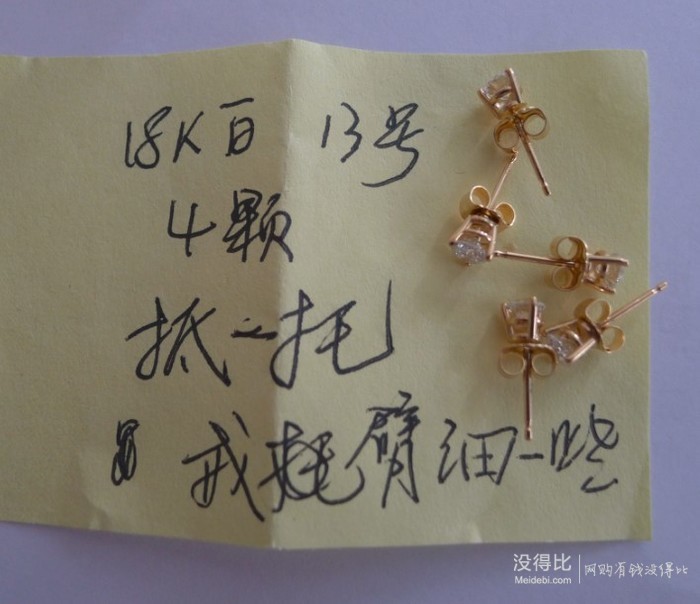 18K百 13号
4颗
抵一托
戒托臂细一些
没得比
Meidebi.com
网购有钱没得比